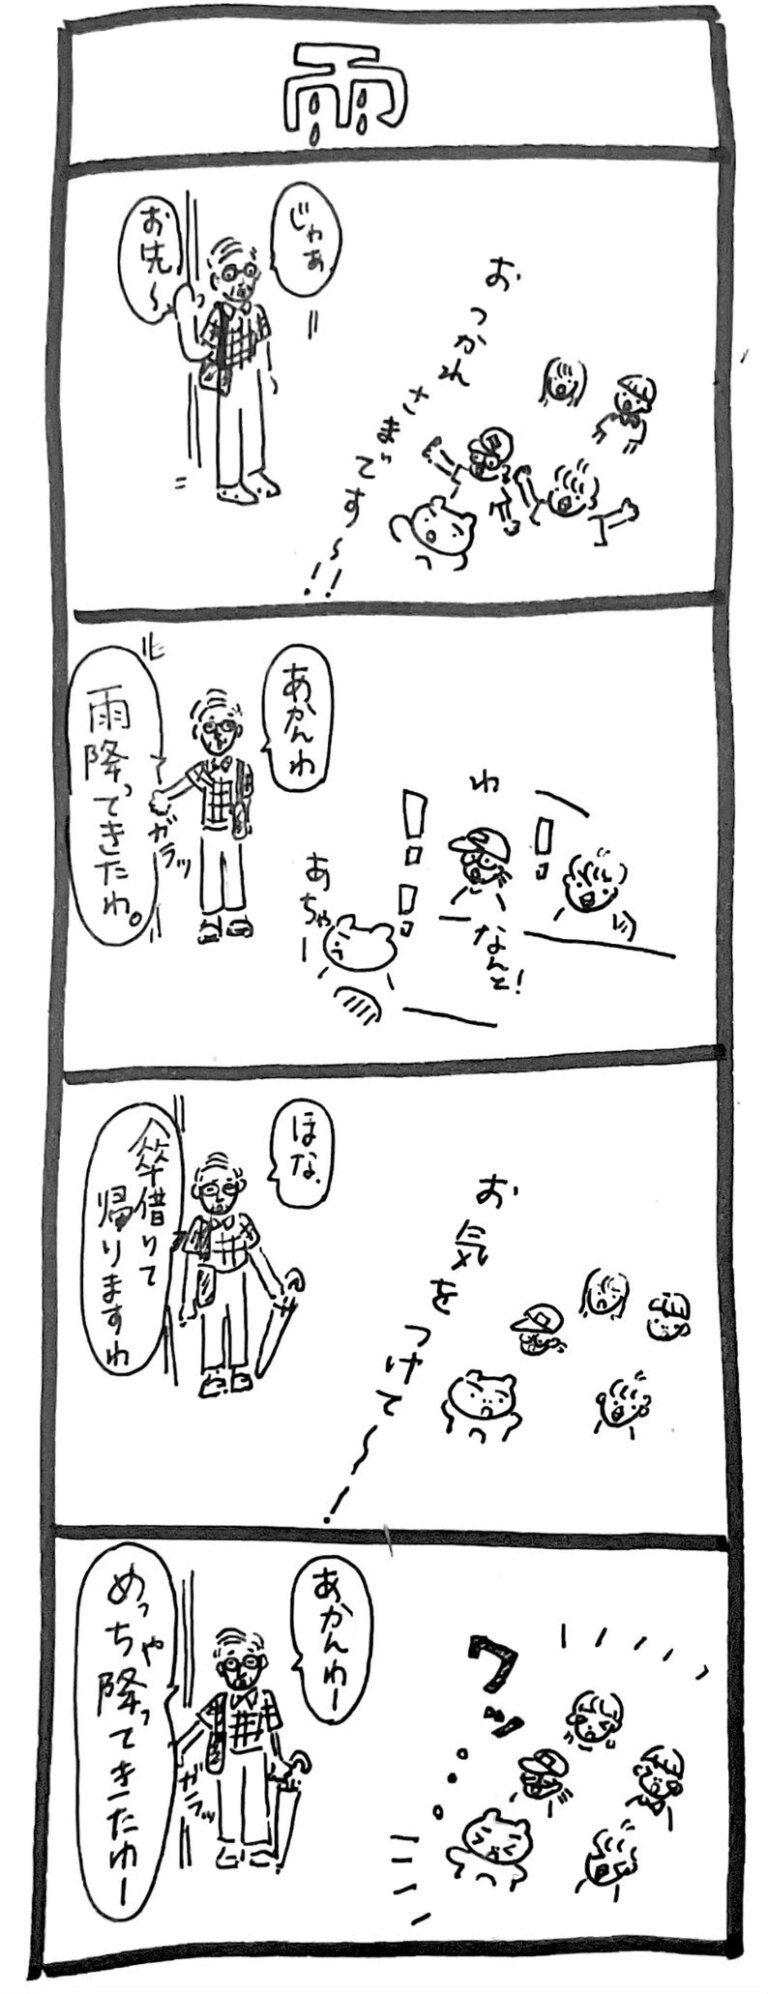 雨
じゃあ
お先〜
おつかれさまです〜!!
あかんわ
雨降ってきたわ。
ガラッ
わ
!!
!
なんと!
あちゃー
ほな、
傘借りて
帰りますわ
お気をつけて〜
あかんわー
めっちゃ降ってきたわー
ガラッ
ワッ...